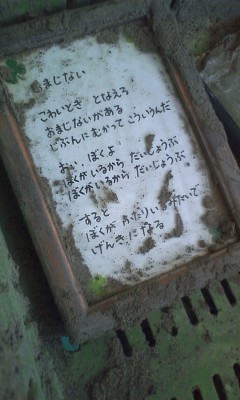 まじない
こわいとき となえろ
おまじないがある
じぶんにむかって こういうんだ
おい ぼくよ
ぼくがいるから だいじょうぶ
ぼくがいるから だいじょうぶ。
すると
ぼくが ふたりいるみたいで
げんきになる